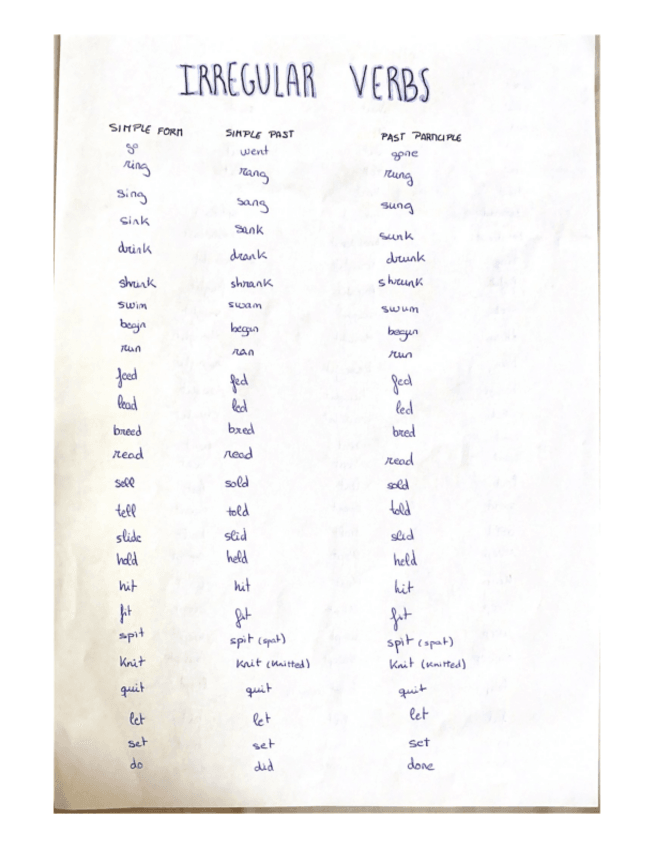 IRREGULAR VERBS
SIMPLE FORM SIMPLE PAST PAST PARTICIPLE
go went gone
ring rang rung
sing sang sung
sink sank sunk
drink drank drunk
shrink shrank shrunk
swim swam swum
begin began begun
run ran run
feed fed fed
lead led led
breed bred bred
read read read
sell sold sold
tell told told
slide slid slid
hold held held
hit hit hit
fit fit fit
spit spit (spat) spit (spat)
Knit Knit (Knitted) Knit (Knitted)
quit quit quit
let let let
set set set
do did done